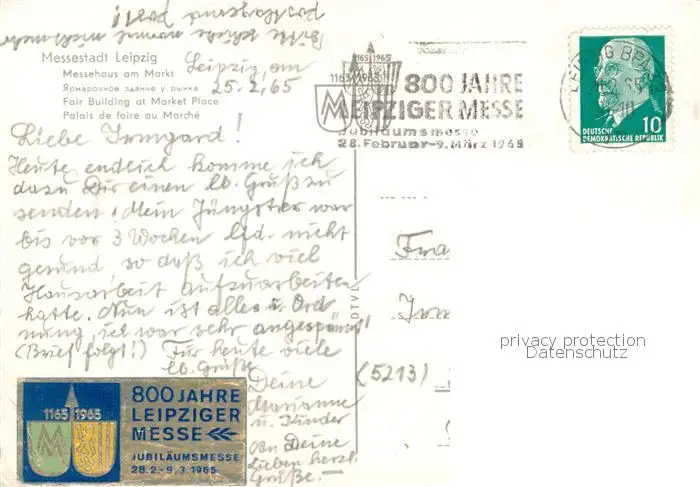 Bitte schicke
postlagernd
Messestadt Leipzig
Messehaus am Markt
Ярмарочное здание у рынка
Fair Building at Market Place
Palais de foire au Marché
Leipzig, am
25.2.65
Liebe Irmgard!
Heute endlich komme ich
dazu Dir einen lb. Gruß zu
senden! Mein Jüngster war
bis vor 3 Wochen lfd. nicht
gesund so daß ich viel
Hausarbeit aufzuarbeiten
hatte. Nun ist alles i. Ord
nung, ich war sehr angespannt!
(Brief folgt!) Für heute viele
lb. Grüße
Deine
Marianne
u. Kinder
an Deine
Lieben herzl.
Grüße.
1165 1965
1165 1965
800 JAHRE
LEIPZIGER MESSE
Jubiläumsmesse
28. Februar-9. März 1965
LEIPZIG BPA
10
DEUTSCHE
DEMOKRATISCHE REPUBLIK
10
Fra
Irm
(5213)
privacy protection
Datenschutz
800 JAHRE
LEIPZIGER
MESSE
JUBILÄUMSMESSE
28.2.-9.3.1965
1165 1965